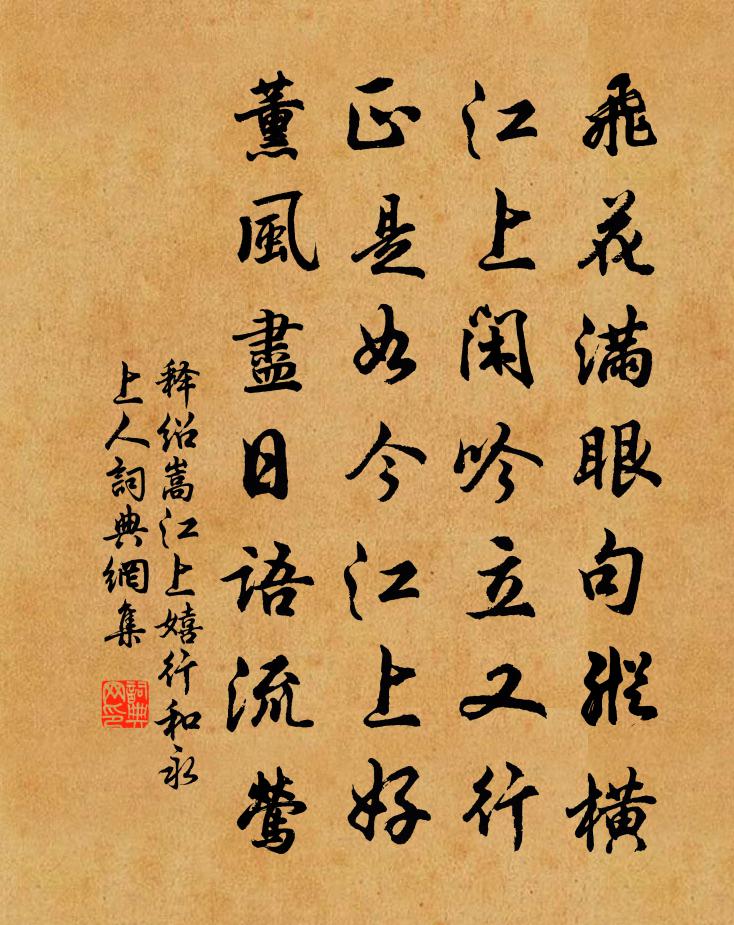 飛花滿眼句縱橫
江上閑吟立又行
正是如今江上好
薰風盡日語流鶯
释绍嵩江上嬉行和永
上人詞典網集
詞典
网印